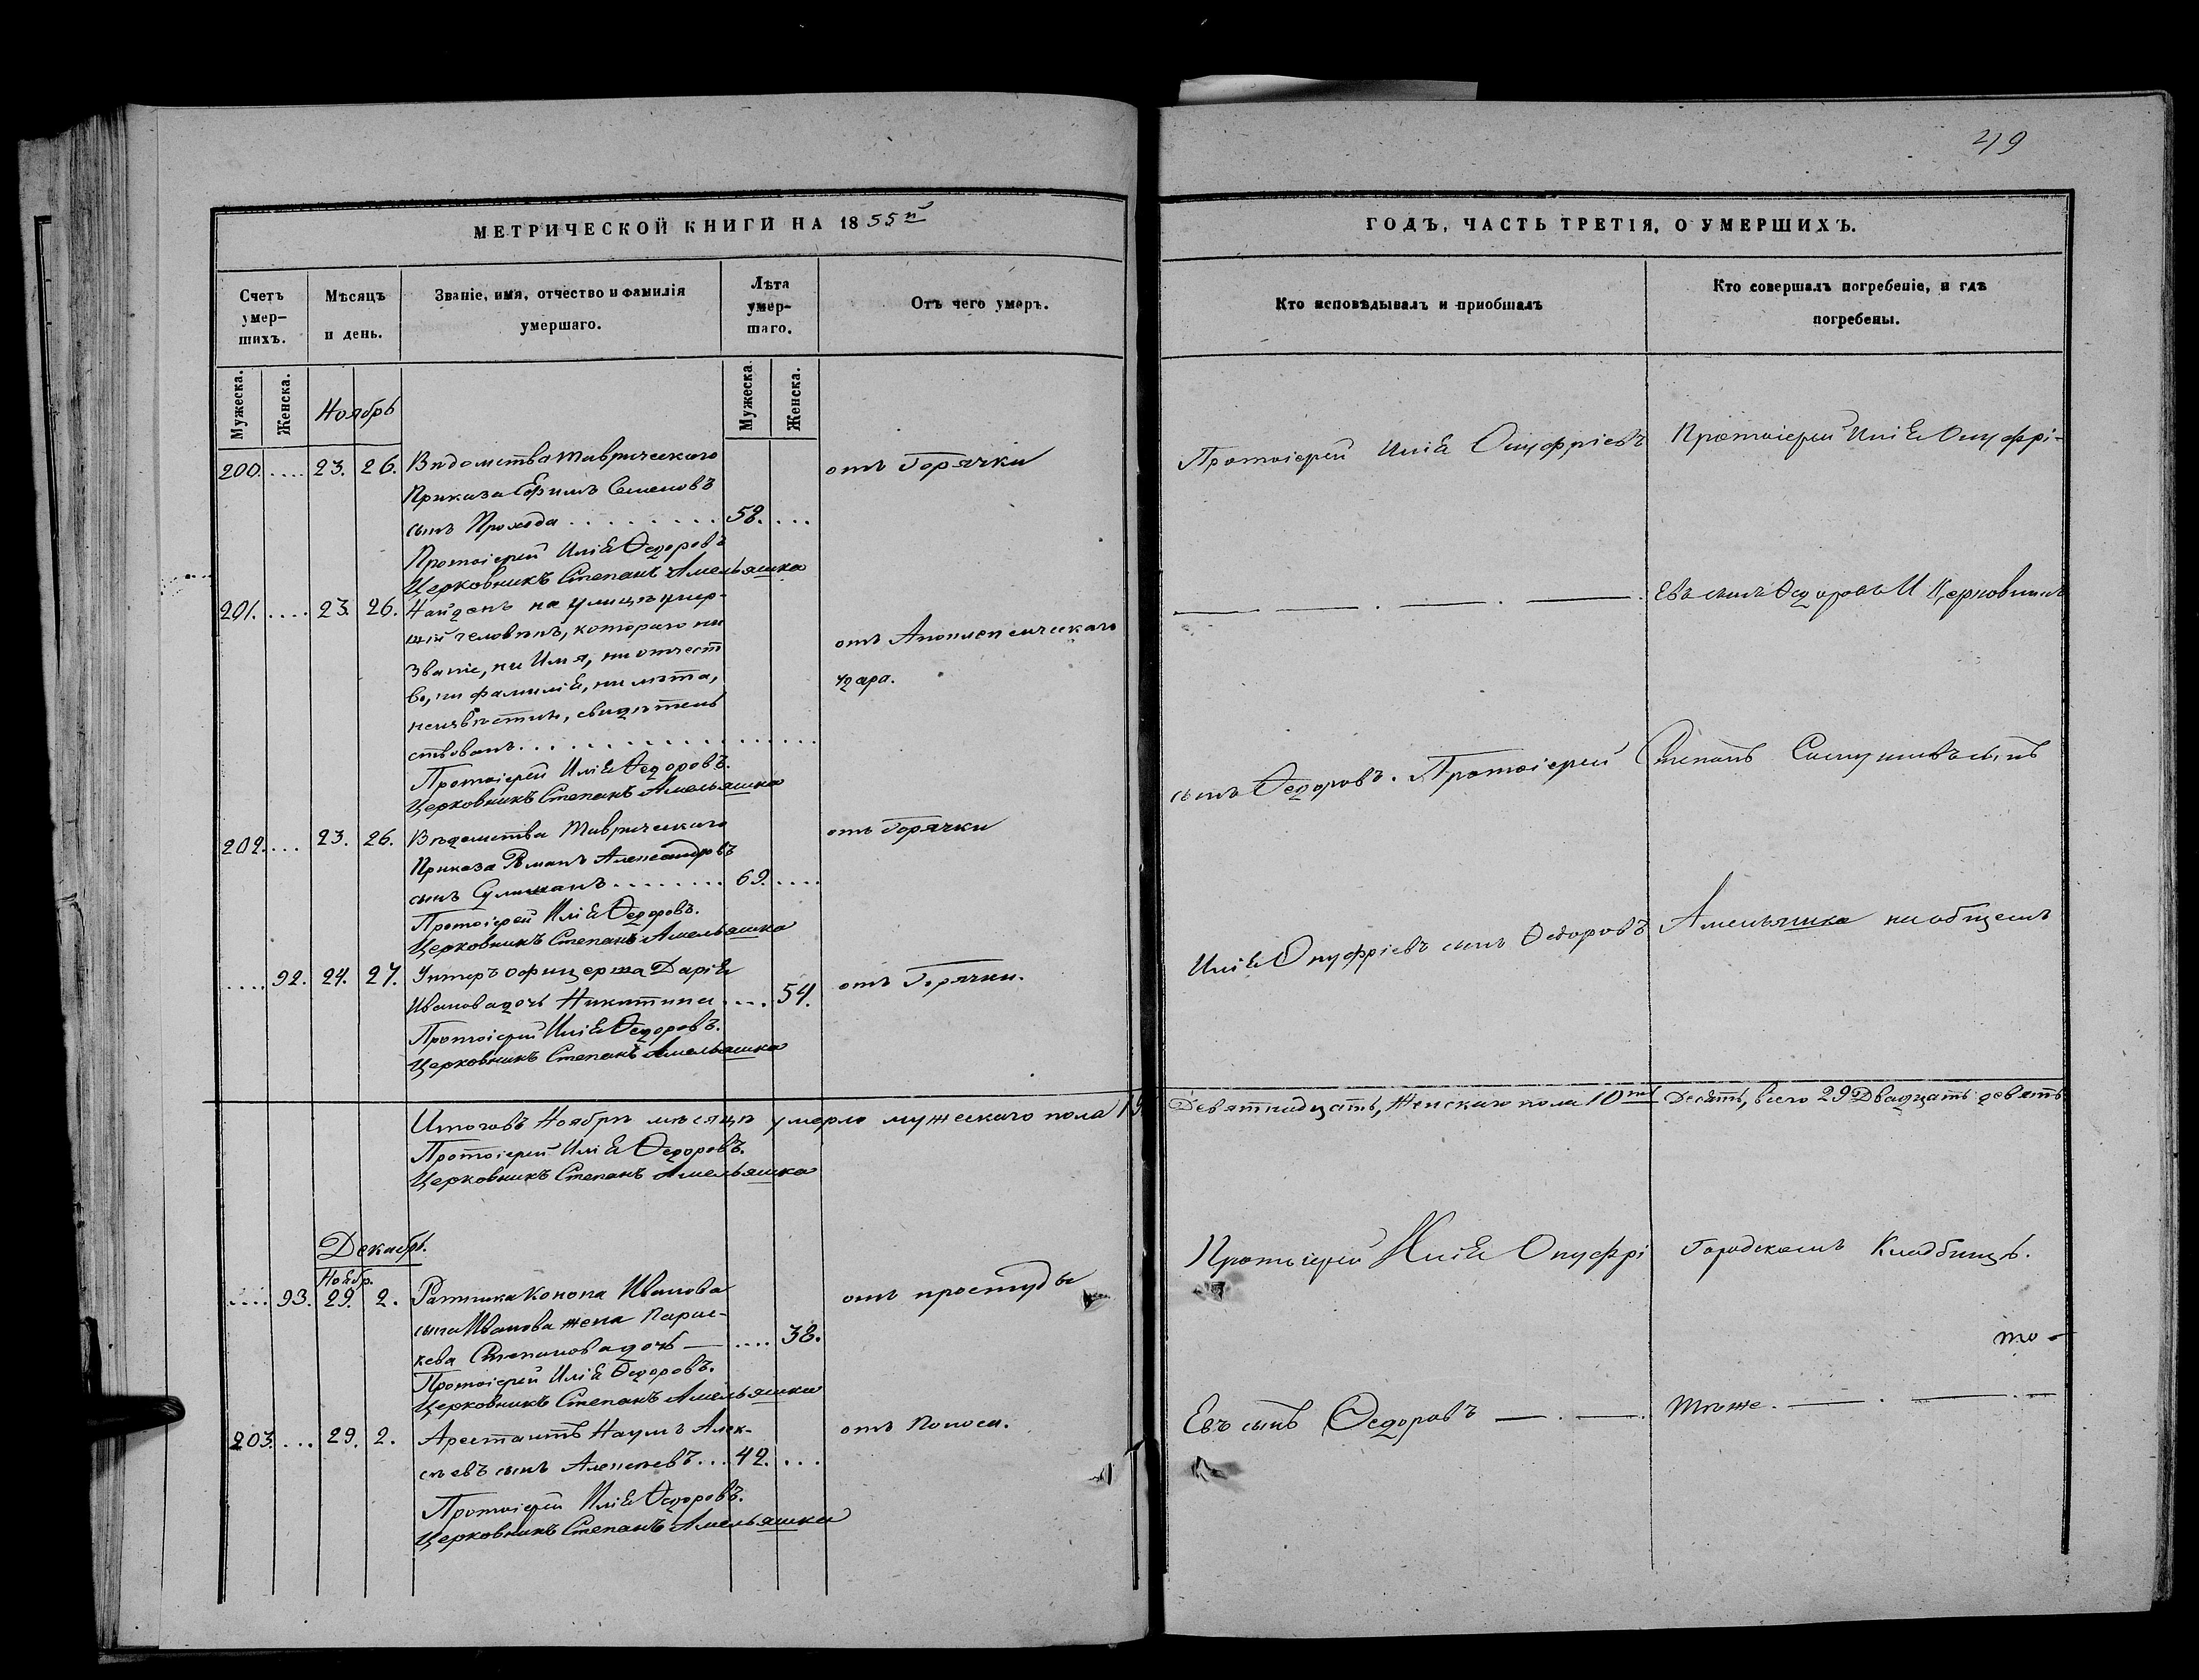 219
МЕТРИЧЕСКОЙ КНИГИ НА 1855й
ГОДЪ, ЧАСТЬ ТРЕТІЯ, О УМЕРШИХЪ.
Счетъ умер-
шихъ.
Мѣсяцъ
и день.
Званіе, имя, отчество и фамилія
умершаго.
Лѣта
умер-
шаго.
Отъ чего умеръ.
Кто исповѣдывалъ и приобщалъ
Кто совершалъ погребеніе, и гдѣ
погребены.
Мужеска.
Женска.
Мужеска.
Женска.
Ноябрь
200. .... 23. 26. Вѣдомства Таврическаго
Приказа Ефимъ Семеновъ
сынъ Прохода ........ 58. ...
отъ Горячки
Протоіерей Илія Онуфріевъ
Протоіерей Илія Онуфрі-
Протоіерей Илія Ѳедоровъ
Церковникъ Степанъ Амельяшка
201. .... 23. 26. Найденъ на улицѣ умер-
шій человѣкъ, котораго ни
Званіе, ни Имя, ни отчест
во, ни фамилія, ни лѣта,
неизвѣстны, свидѣтель
ствованъ ..............
отъ Апоплексическаго
удара.
евъ сынъ Ѳедоровъ И Церковникъ
Протоіерей Илія Ѳедоровъ.
Церковникъ Степанъ Амельяшка
сынъ Ѳедоровъ. Протоіерей
Степанъ сынъ
202. ... 23. 26. Вѣдомства Таврическаго
Приказа Романъ Александровъ
сынъ ........ 69. ....
отъ Горячки
Протоіерей Илія Ѳедоровъ.
Церковникъ Степанъ Амельяшка
Илія Онуфріевъ сынъ Ѳедоровъ
Амельяшка на общемъ
.... 92. 24. 27. Унтеръ офицерша Дарія
Иванова дочь Никитина .... 54.
отъ Горячки.
Протоіерей Илія Ѳедоровъ.
Церковникъ Степанъ Амельяшка
Итого въ Ноябрѣ мѣсяцѣ умерло мужескаго пола 19 Девятнадцать, Женскаго пола 10ть Десять, всего 29 Двадцать девять
Протоіерей Илія Ѳедоровъ.
Церковникъ Степанъ Амельяшка
Декабрь.
Ноябр.
.... 93. 29. 2. Ратника Конона Иванова
сына Иванова жена Парас-
кева Степанова дочь — .... 38.
отъ простуды
Протоіерей Илія Онуфрі
Городскомъ Кладбищѣ.
Протоіерей Илія Ѳедоровъ.
Церковникъ Степанъ Амельяшка
то-
203. ... 29. 2. Арестантъ Наумъ Алек-
сѣевъ сынъ Алексѣевъ ... 42. ...
отъ Поноса.
Евъ сынъ Ѳедоровъ
Тоже.
Протоіерей Илія Ѳедоровъ.
Церковникъ Степанъ Амельяшка